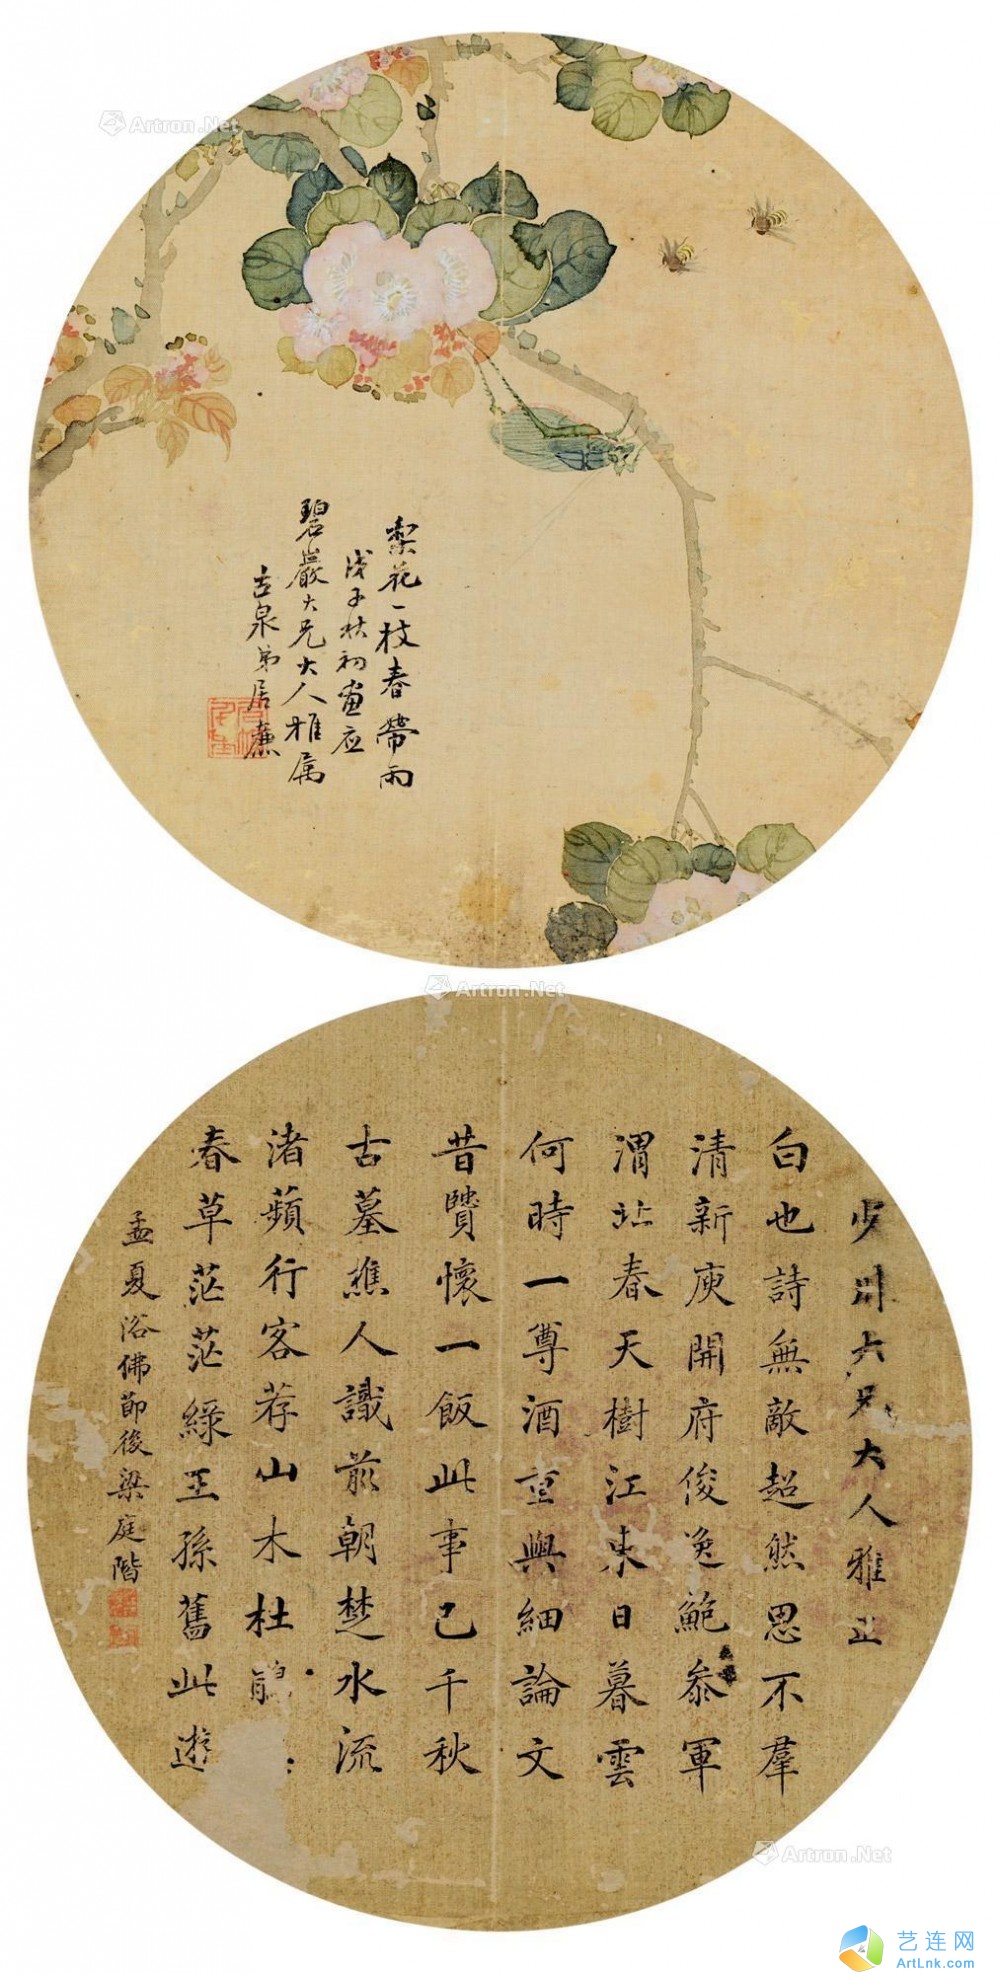 Artron.Net
梨花一枝春帶雨
戊子秋初畫应
碧巖大兄大人雅属
古泉弟居廉
Artron.Net
少川六兄大人雅正
白也詩無敵超然思不羣
清新庾開府俊逸鮑叅軍
渭北春天樹江東日暮雲
何時一尊酒重與細論文
昔賢懷一飯此事已千秋
古墓樵人識前朝楚水流
渚蘋行客荐山木杜鵑
春草茫茫綠王孫舊此遊
孟夏浴佛節後梁庭階
Artron.Net
艺连网
ArtLnk.com